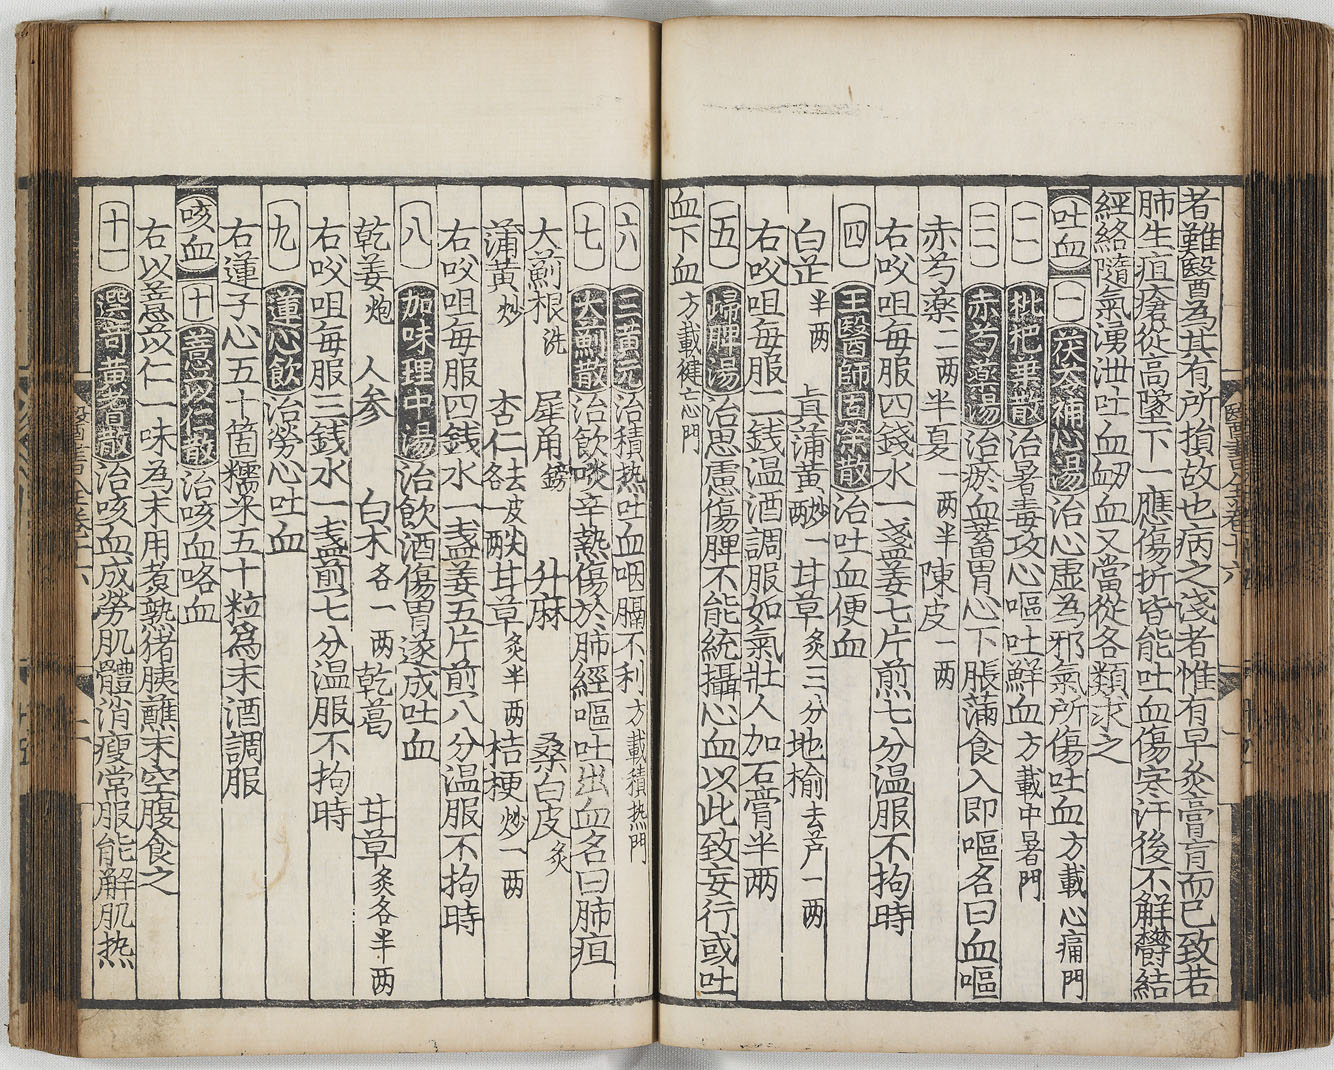 者難醫為其有所損故也病之淺者惟有早灸膏肓而已致若
肺生疽瘡從高墜下一應傷折皆能吐血傷寒汗後不解欝結
經絡隨氣湧泄吐血衂血又當從各類求之
吐血 一 茯苓補心湯 治心虛為邪氣所傷吐血方載心痛門
二 枇杷葉散 治暑毒攻心嘔吐鮮血方載中暑門
三 赤芍藥湯 治瘀血蓄胃心下脹滿食入即嘔名曰血嘔
赤芍藥二两 半夏一两半 陳皮一两
右㕮咀每服四錢水一盞姜七片煎七分温服不拘時
四 王醫師固榮散 治吐血便血
白芷半两 真蒲黄炒一两 甘草炙三分 地榆去芦一两
右㕮咀每服二錢温酒調服如氣壯人加石膏半两
五 歸脾湯 治思慮傷脾不能統攝心血以此致妄行或吐
血下血方載健忘門
六 三黄元 治積热吐血咽膈不利方載積热門
七 大薊散 治飲啖辛熱傷於肺經嘔吐出血名曰肺疽
大薊根洗 犀角鎊 升麻 桑白皮炙
蒲黄炒 杏仁去皮尖各一两 甘草炙半两 桔梗炒一两
右㕮咀每服四錢水一盞姜五片煎八分温服不拘時
八 加味理中湯 治飲酒傷胃遂成吐血
乾姜炮 人参 白术各一两 乾葛 甘草炙各半两
右㕮咀每服三錢水一盞煎七分温服不拘時
九 蓮心飲 治勞心吐血
右蓮子心五十箇糯米五十粒為末酒調服
咳血 十 薏苡仁散 治咳血咯血
右以薏苡仁一味為末用煮熟猪胰蘸末空腹食之
十一 選竒黄耆散 治咳血成勞肌體消瘦常服能解肌热